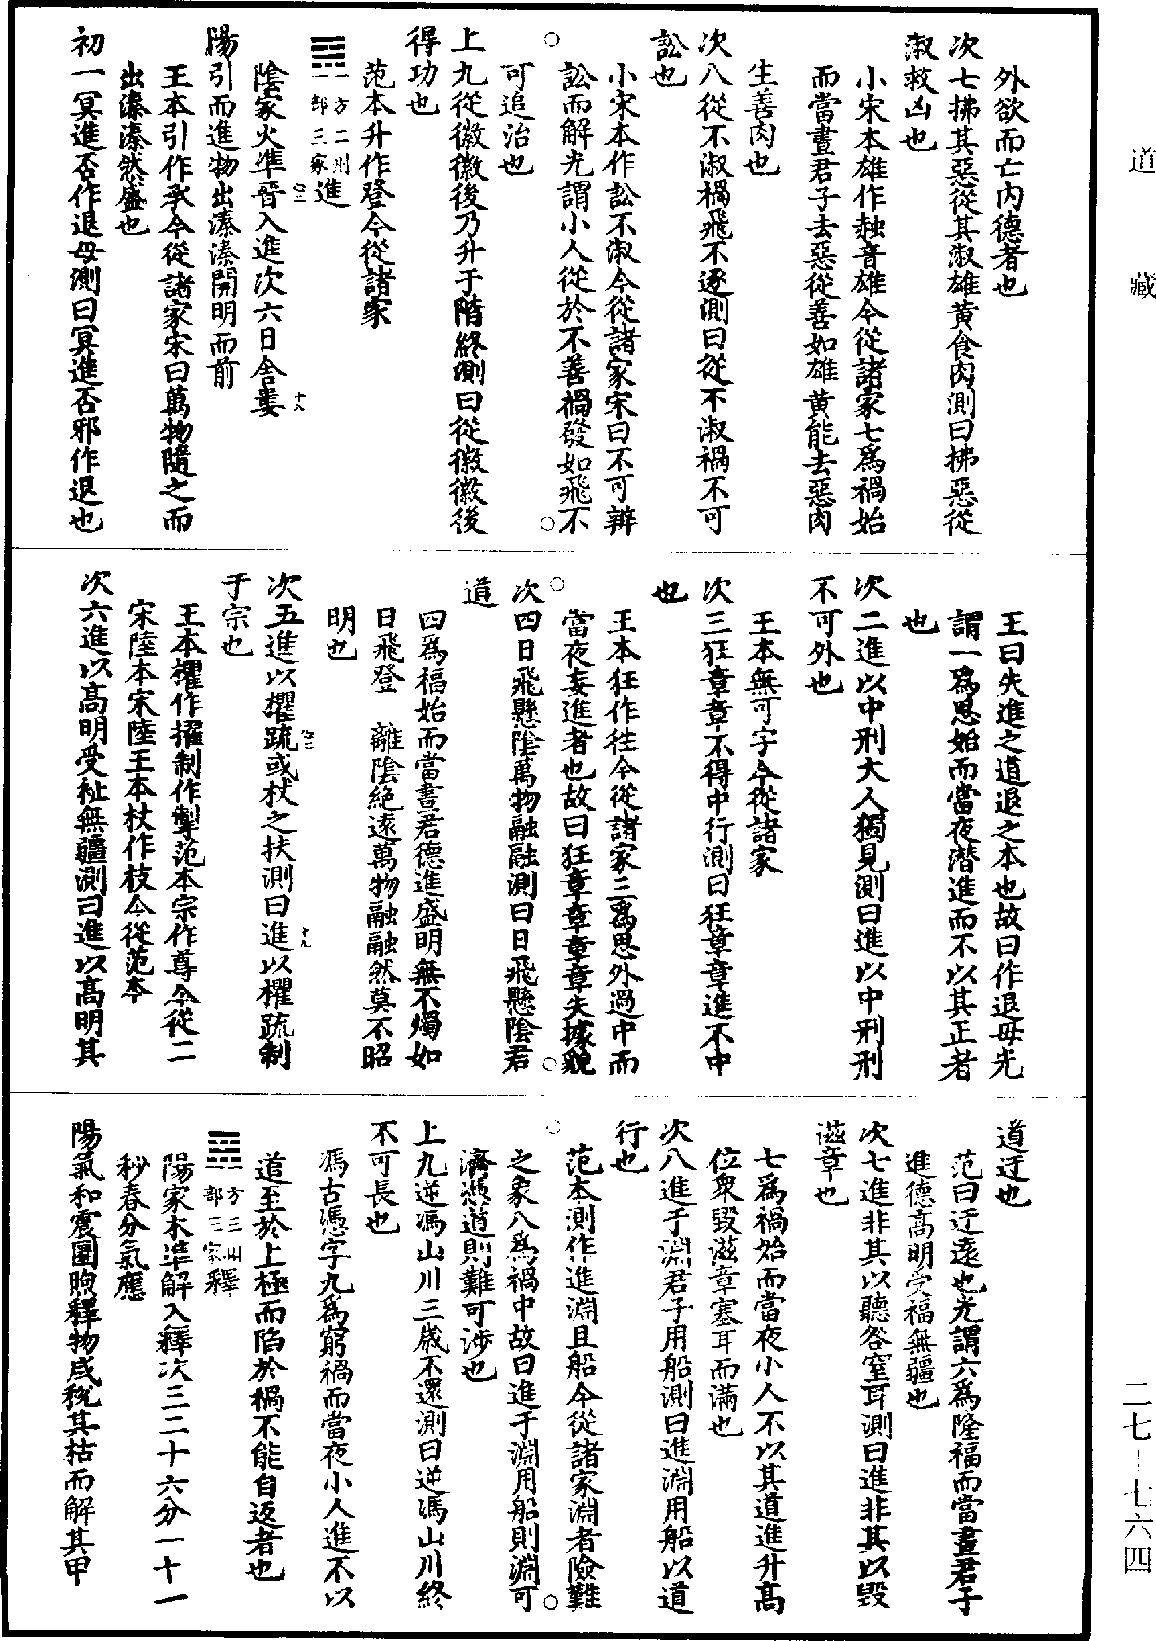 道藏
外欲而亡内德者也
次七拂其惡從其淑雄黄食肉測曰拂惡從
淑救凶也
小宋本雄作䧺音雄今從諸家七爲禍始
而當晝君子去惡從善如雄黄能去惡肉
生善肉也
次八從不淑禍飛不逐測曰從不淑禍不可
訟也
小宋本作訟不淑今從諸家宋曰不可辨
訟而解光謂小人從於不善禍發如飛不
可追治也
上九從徽徽後乃升于階終測曰從徽徽後
得功也
范本升作登今從諸家
一方二州一部三家進
陰家火準晉入進次六日舍婁
陽引而進物出溱溱開明而前
王本引作承今從諸家宋曰萬物隨之而
出溱溱然盛也
初一冥進否作退母測曰冥進否邪作退也
王曰失進之道退之本也故曰作退母光
謂一爲思始而當夜潜進而不以其正者
也
次二進以中刑大人獨見測曰進以中刑刑
不可外也
王本無可字今從諸家
次三狂章章不得中行測曰狂章章進不中
也
王本狂作往今從諸家三爲思外過中而
當夜妄進者也故曰狂章章章章失據貌
次四日飛懸陰萬物融融測曰日飛懸陰君
道
四爲福始而當晝君德進盛明無不燭如
日飛登 離陰絶遠萬物融融然莫不昭
明也
次五進以欋疏或杖之扶測曰進以欋疏制
于宗也
王本欋作擢制作掣范本宗作尊今從二
宋陸本宋陸王本杖作枝今從范本
次六進以高明受祉無疆測曰進以高明其
道迂也
范曰迂遠也光謂六爲隆福而當晝君子
進德高明受福無疆也
次七進非其以聽咎窒耳測曰進非其以毀
滋章也
七爲禍始而當夜小人不以其道進升高
位衆毀滋章塞耳而滿也
次八進于淵君子用船測曰進淵用船以道
行也
范本測作進淵且船今從諸家淵者險難
之象八爲禍中故曰進于淵用船則淵可
濟憑道則難可涉也
上九逆馮山川三歲不還測曰逆馮山川終
不可長也
馮古憑字九爲窮禍而當夜小人進不以
道至於上極而陷於禍不能自返者也
一方三州一部三家釋
陽家木準解入釋次三二十六分一十一
秒春分氣應
陽氣和震圜煦釋物咸稅其枯而解其甲
二七—七六四